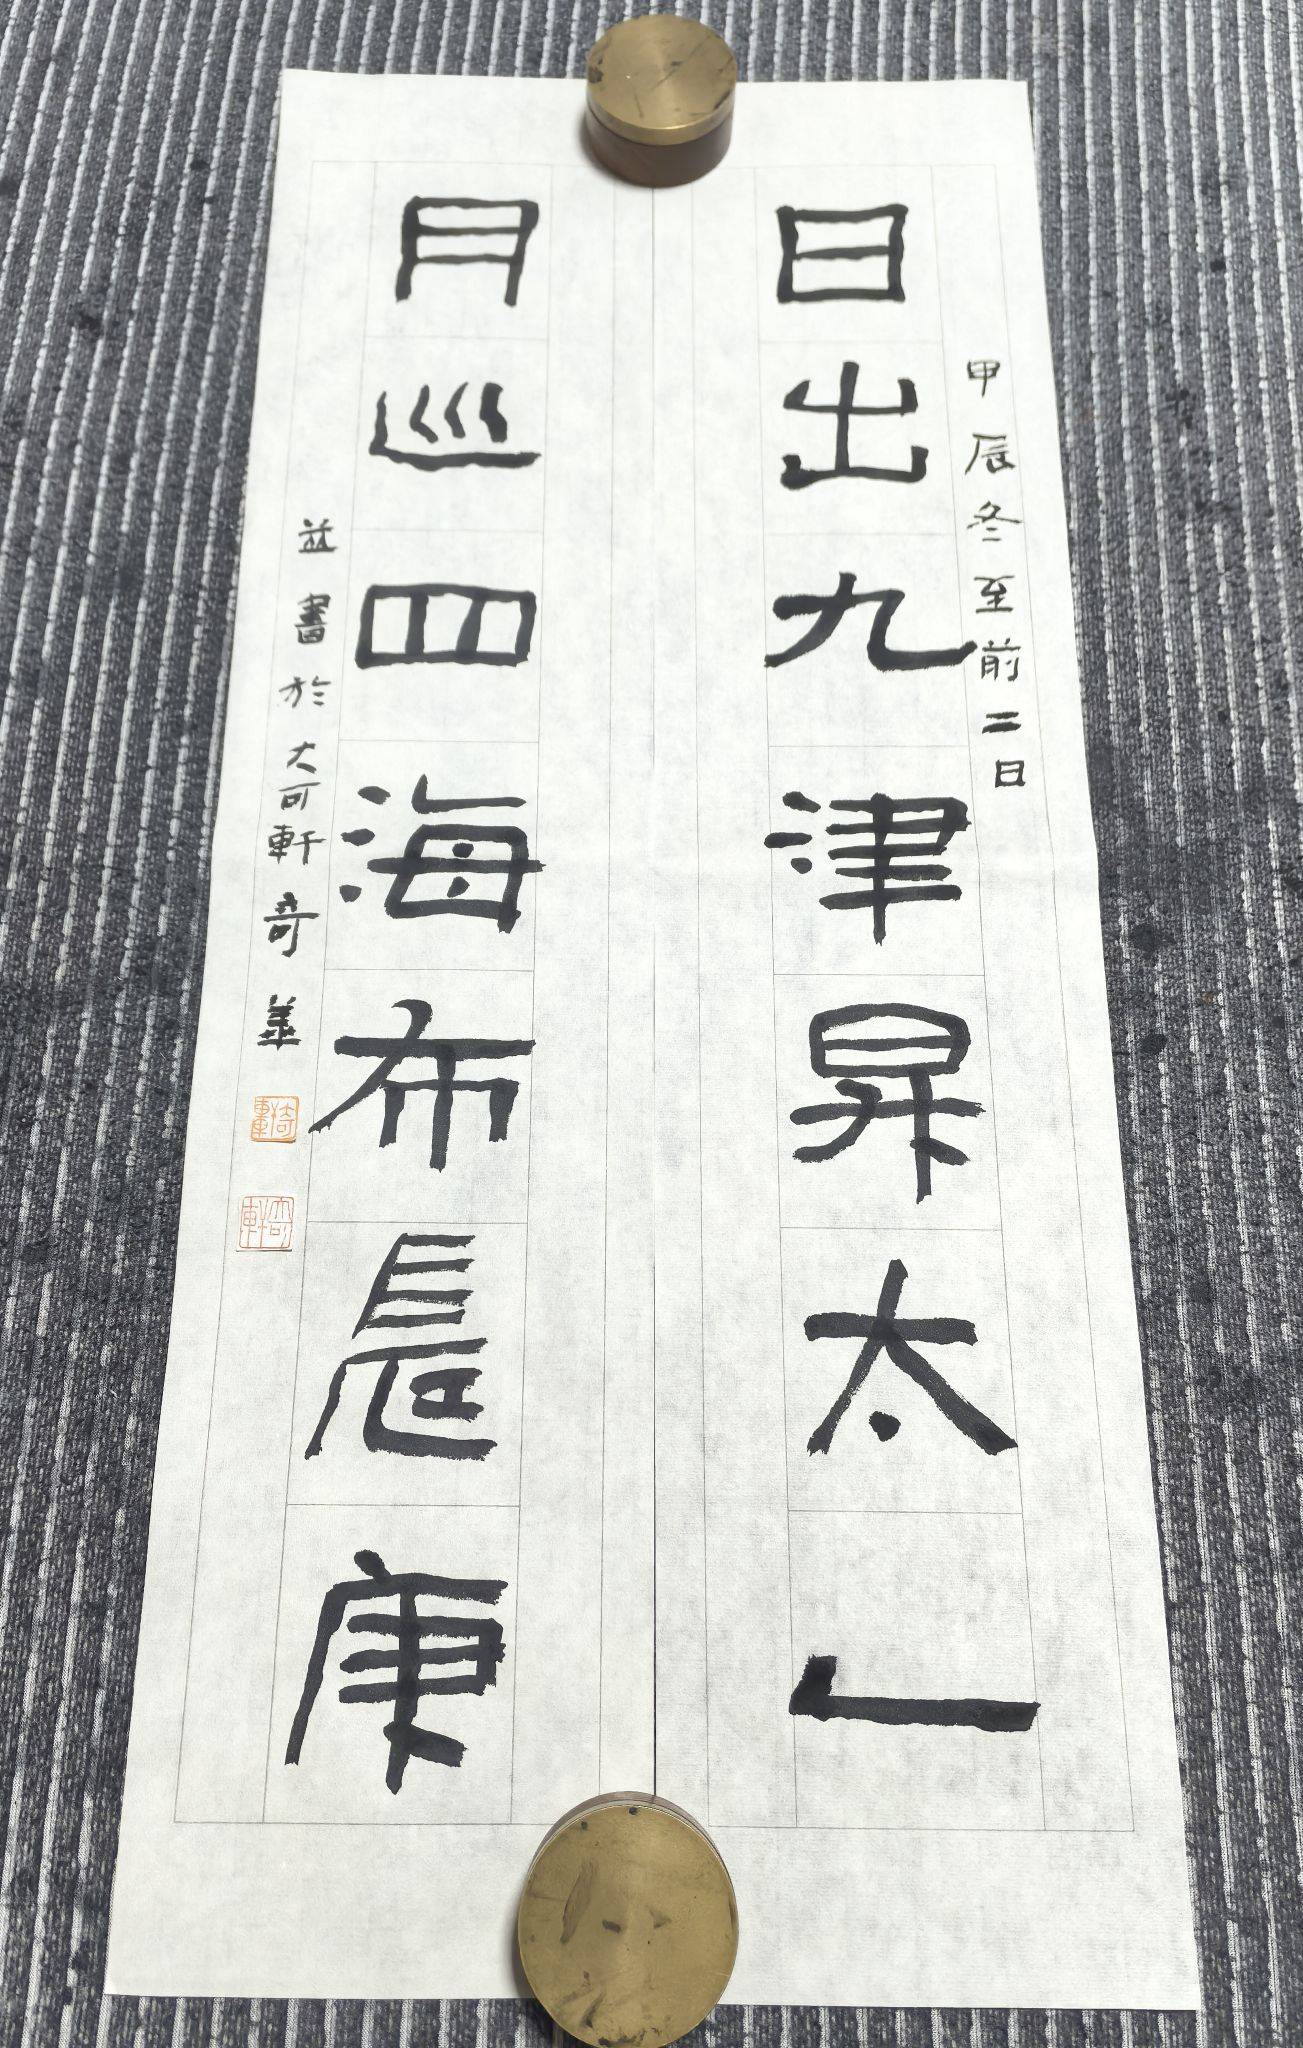 甲辰冬至前二日
日出九津昇太一
月巡四海布長康
並書於大可軒奇